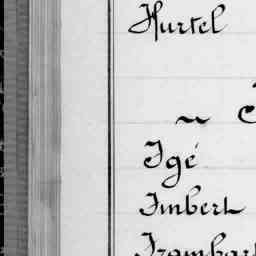 Hurtel
Igé
Imbert